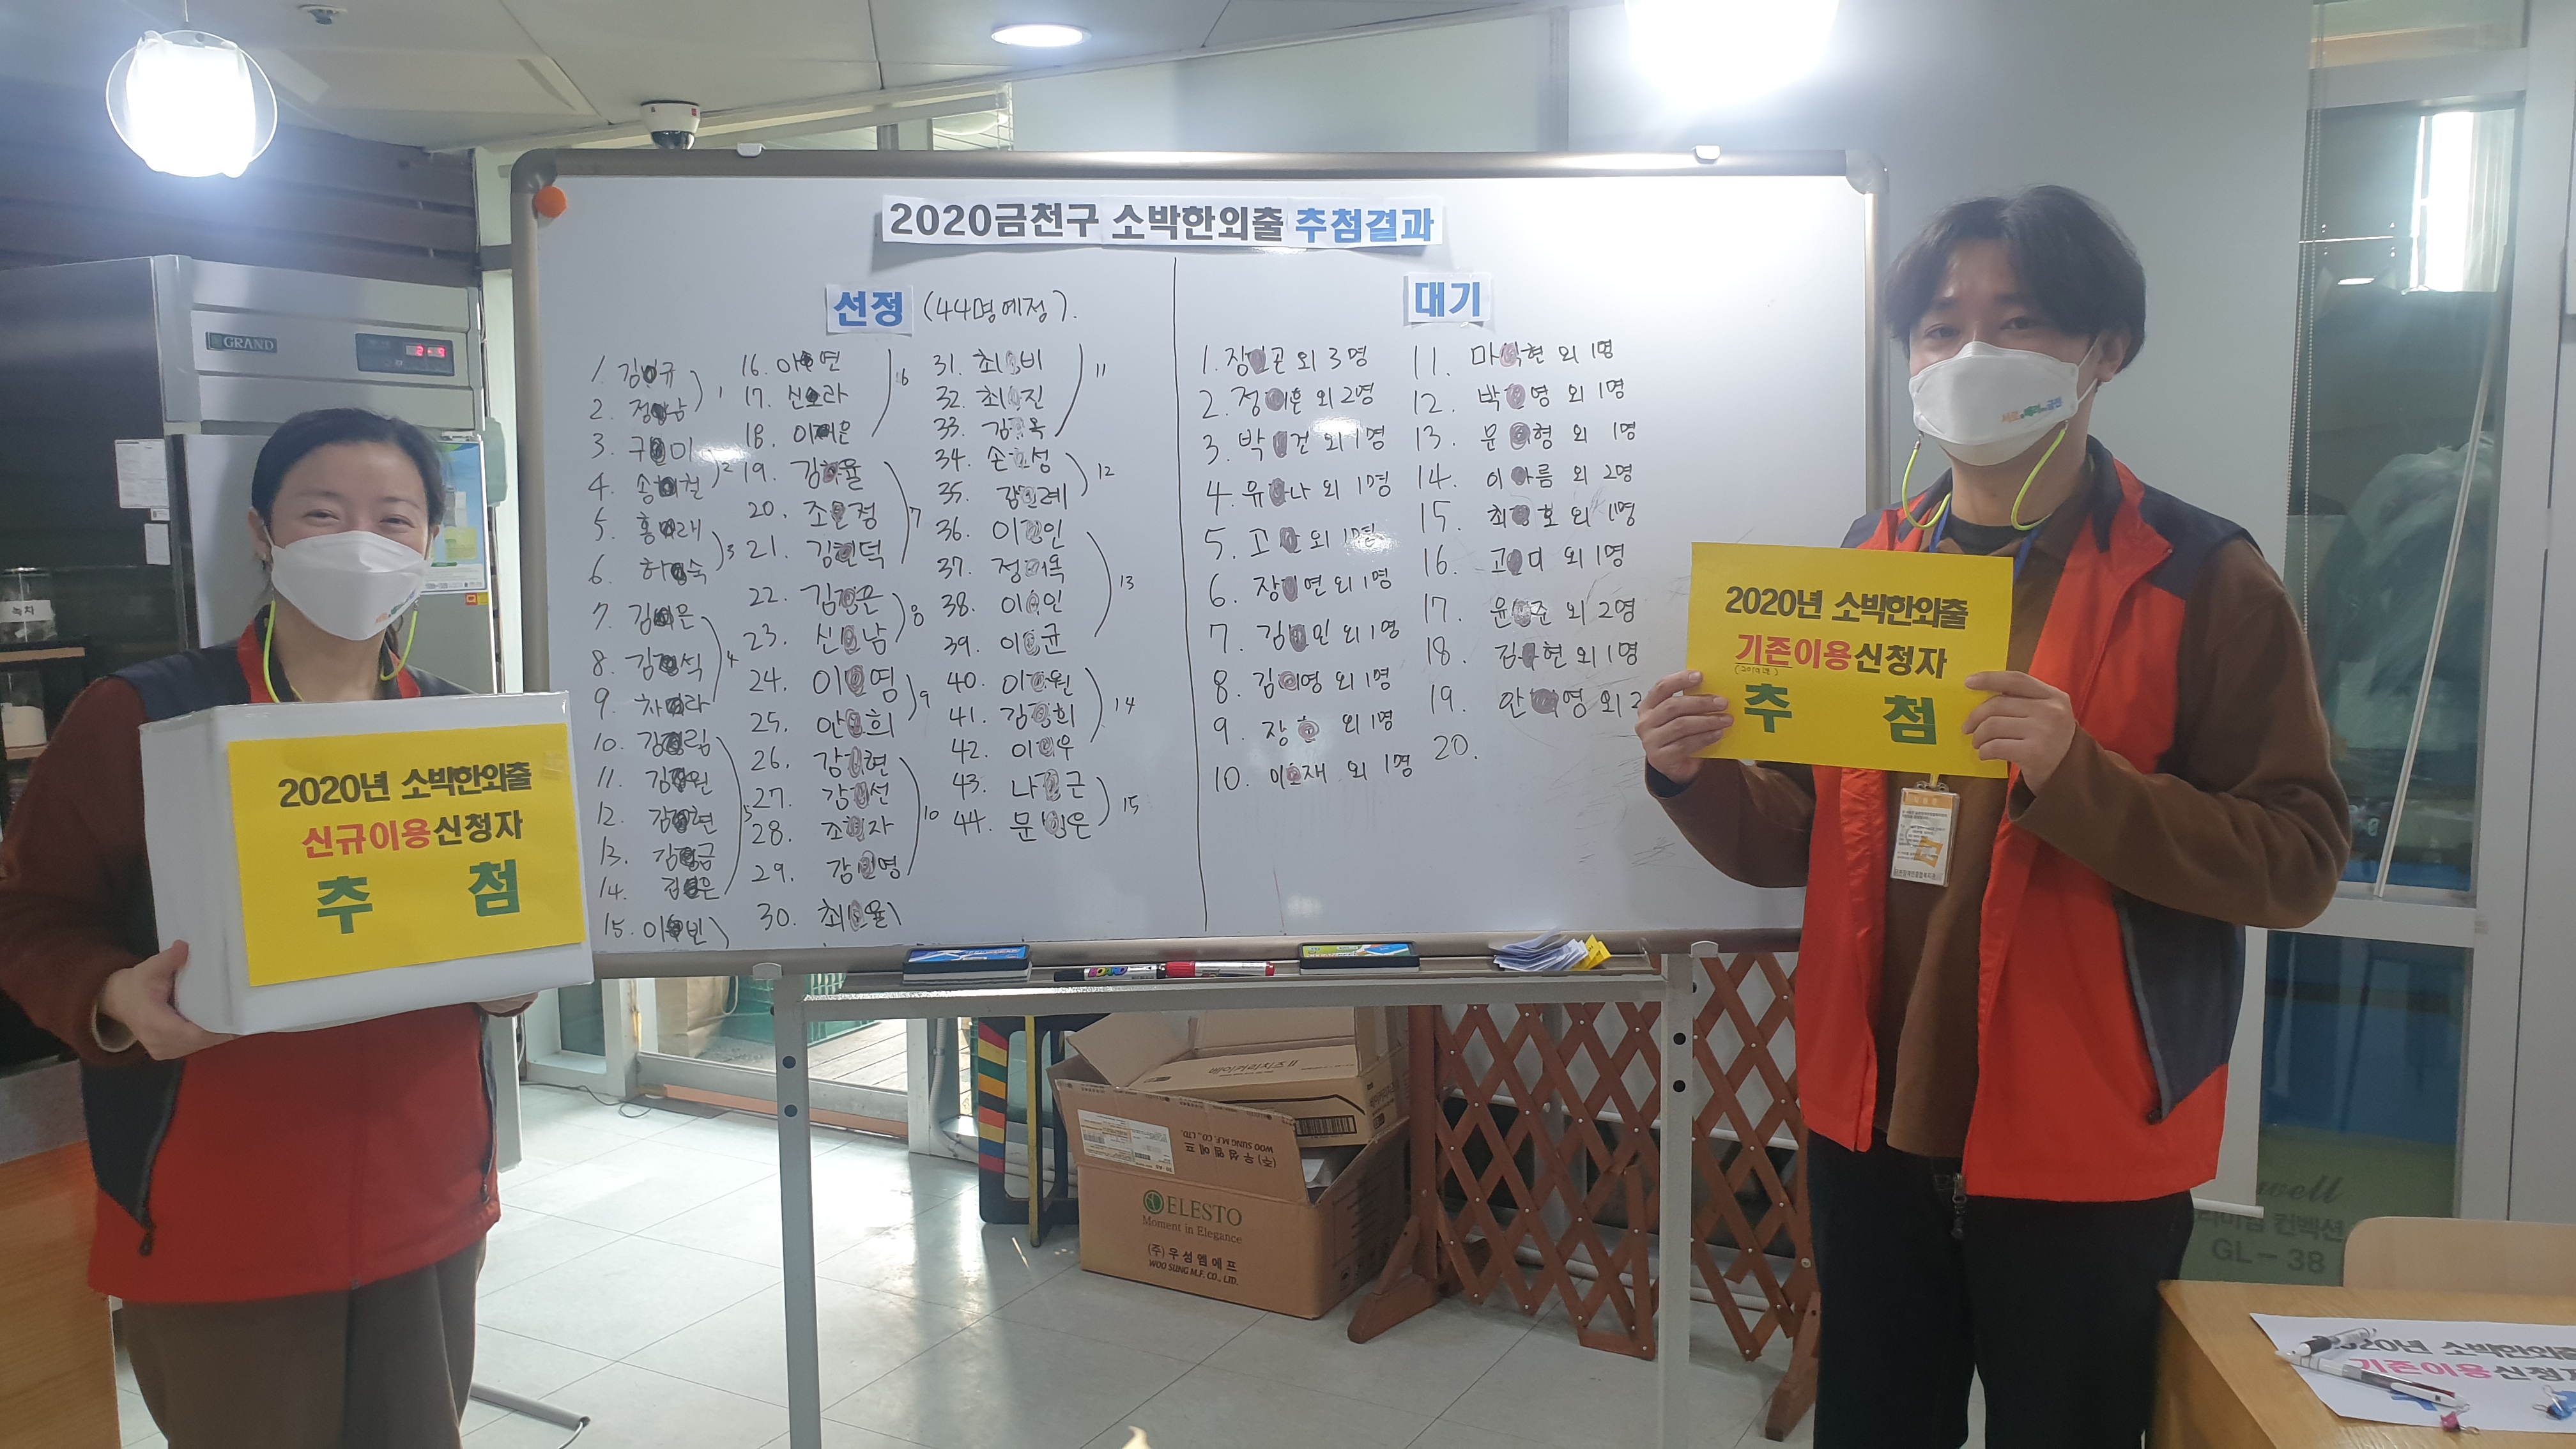 2020금천구 소박한외출 추첨결과
선정 (44명예정).
1. 김 규
2. 정 남
3. 구 미
4. 송 철
5. 홍 래
6. 하 숙
7. 김 은
8. 김 석
9. 차 라
10. 김 림
11. 김 원
12. 김 현
13. 김 금
14. 김 은
15. 이 빈
16. 이 연
17. 신 라
18. 이 은
19. 김 율
20. 조 정
21. 김 덕
22. 김 곤
23. 신 남
24. 이 영
25. 안 희
26. 강 현
27. 강 선
28. 조 자
29. 강 영
30. 최 율
31. 최 비
32. 최 진
33. 김 옥
34. 손 성
35. 감 례
36. 이 인
37. 정 옥
38. 이 인
39. 이 균
40. 이 원
41. 김 희
42. 이 우
43. 나 근
44. 문 은
1
2
3
4
5
16
7
8
9
10
11
12
13
14
15
대기
1. 장 곤 외 3명
2. 정 훈 외 2명
3. 박 건 외 1명
4. 유 나 외 1명
5. 고 외 1명
6. 장 연 외 1명
7. 김 인 외 1명
8. 김 영 외 1명
9. 장 외 1명
10. 이 재 외 1명
11. 마 현 외 1명
12. 박 영 외 1명
13. 문 형 외 1명
14. 이 름 외 2명
15. 최 호 외 1명
16. 고 대 외 1명
17. 윤 준 외 2명
18. 김 현 외 1명
19. 안 영 외 2
20.
2020년 소박한외출
신규이용신청자
추 첨
2020년 소박한외출
기존이용신청자
추 첨
GRAND
녹차
BOARD
WOO SUNG M.F. CO., LTD.
(주)우성엠에프
ELESTO
Moment in Elegance
(주)우성엠에프
WOO SUNG M.F. CO., LTD.
well
컨벡션
GL-38
2020년 소박한외출
기존이용신청자